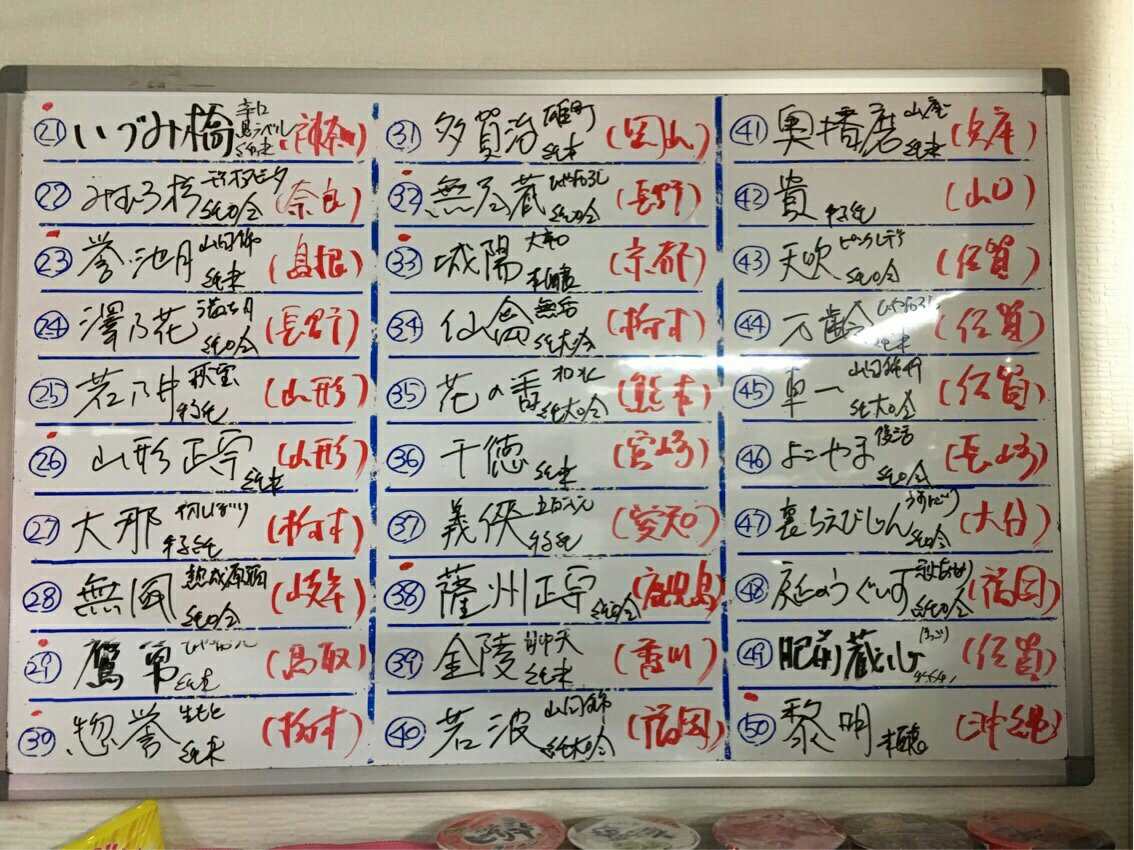 ㉑ いづみ橋 辛口 純米 (神奈川)
㉒ みむろ杉 純吟 (奈良)
㉓ 誉池月 山田錦 純米 (島根)
㉔ 澤乃花 純吟 (長野)
㉕ 若乃井 秋宝 特純 (山形)
㉖ 山形正宗 純米 (山形)
㉗ 大那 特純 (栃木)
㉘ 無風 熟成原酒 純吟 (岐阜)
㉙ 鷹勇 純米 (鳥取)
㉚ 惣誉 生もと 純米 (栃木)
㉛ 多賀治 雄町 純米 (岡山)
㉜ 無尽蔵 ひやおろし 純吟 (長野)
㉝ 城陽 (京都)
㉞ 仙禽 無垢 純大吟 (栃木)
㉟ 花の香 和水 純大吟 (熊本)
㊱ 千徳 純米 (宮崎)
㊲ 義侠 特純 (愛知)
㊳ 薩州正宗 純吟 (鹿児島)
㊴ 金陵 純米 (香川)
㊵ 若波 山田錦 純大吟 (福岡)
㊶ 奥播磨 山廃 純米 (兵庫)
㊷ 貴 特純 (山口)
㊸ 天吹 純吟 (佐賀)
㊹ 万齢 ひやおろし 純米 (佐賀)
㊺ 車一 山田錦 純大吟 (佐賀)
㊻ よこやま 純吟 (長崎)
㊼ 裏ちえびじん うすにごり 純吟 (大分)
㊽ 庭のうぐいす 純吟 (福岡)
㊾ 肥前蔵心 (佐賀)
㊿ 黎明 本醸 (沖縄)